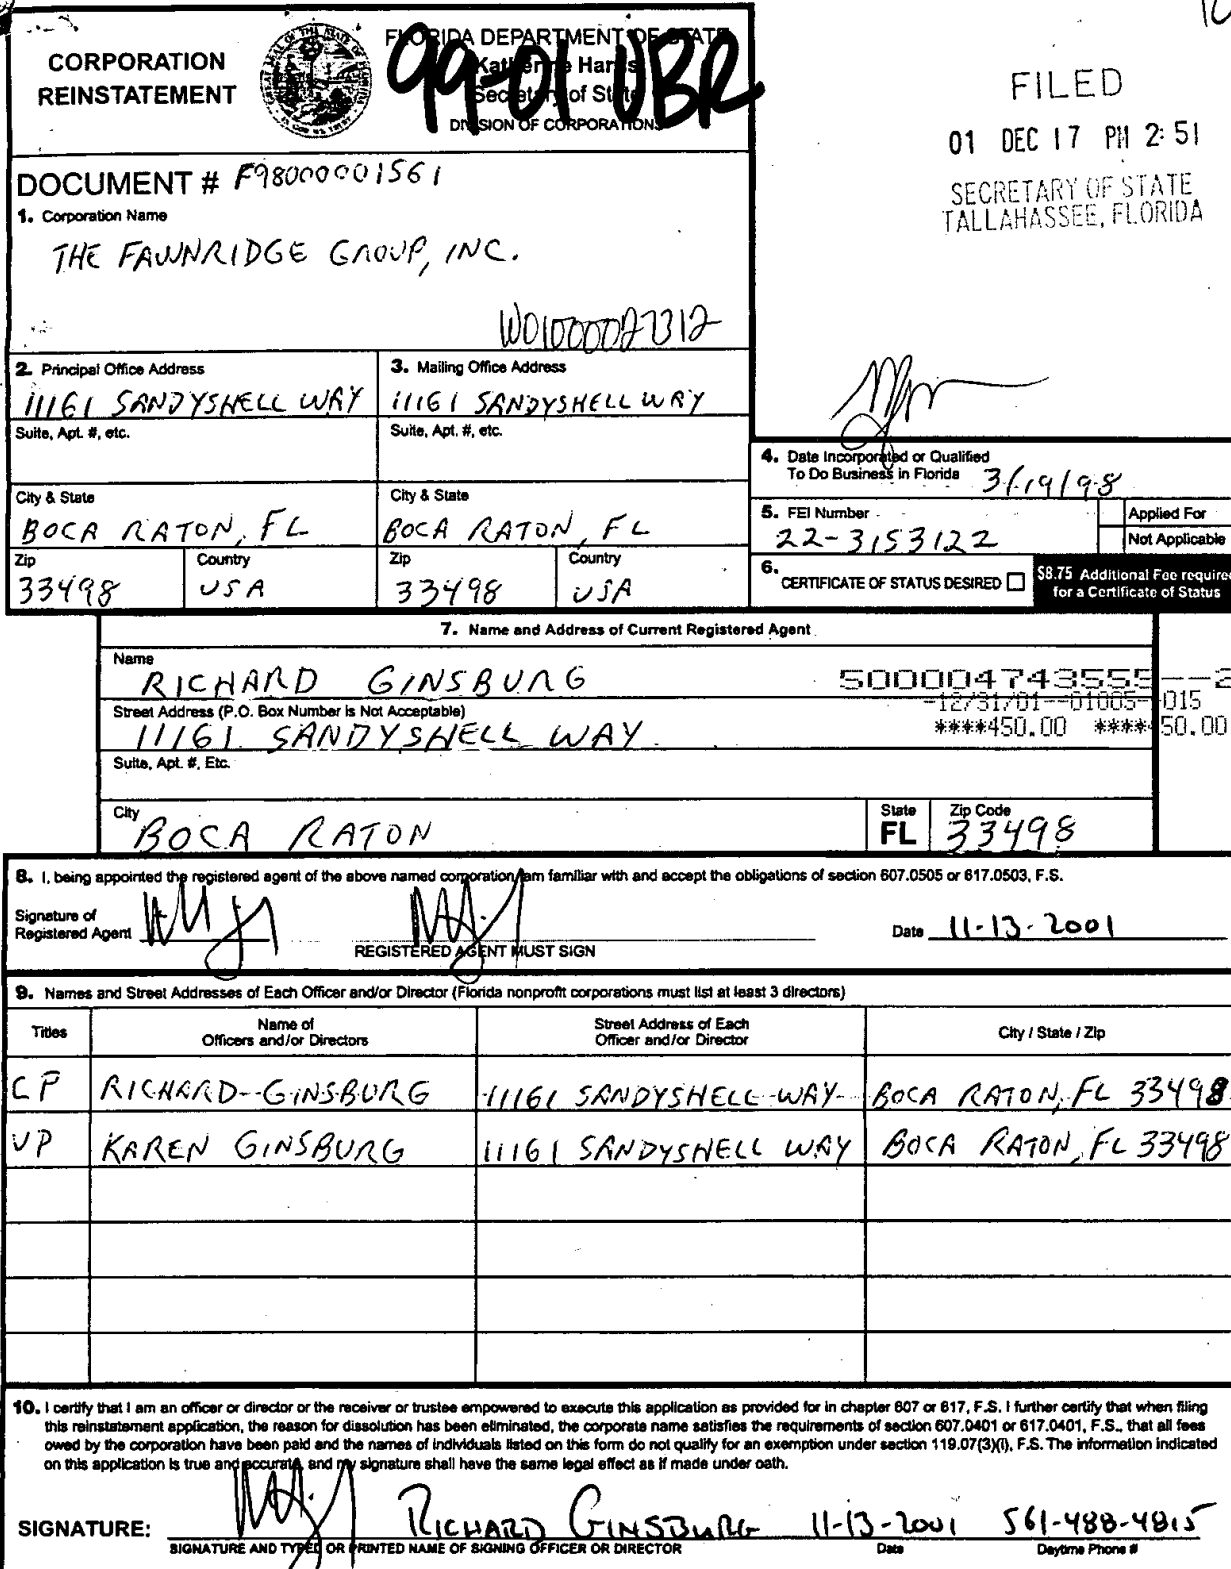 CORPORATION
REINSTATEMENT
FLORIDA DEPARTMENT OF STATE
Katherine Harris
Secretary of State
DIVISION OF CORPORATIONS
99-01 UBR
FILED
01 DEC 17 PM 2:51
SECRETARY OF STATE
TALLAHASSEE, FLORIDA
DOCUMENT # F98000001561
1. Corporation Name
THE FAWNRIDGE GROUP, INC.
W01000027312
2. Principal Office Address
11161 SANDYSHELL WAY
Suite, Apt. #, etc.
City & State
BOCA RATON, FL
Zip
33498
Country
USA
3. Mailing Office Address
11161 SANDYSHELL WAY
Suite, Apt. #, etc.
City & State
BOCA RATON, FL
Zip
33498
Country
USA
4. Date Incorporated or Qualified
To Do Business in Florida 3/19/98
5. FEI Number
22-3153122
Applied For
Not Applicable
6. CERTIFICATE OF STATUS DESIRED
$8.75 Additional Fee required
for a Certificate of Status
7. Name and Address of Current Registered Agent
Name
RICHARD GINSBURG
500004743555--2
-12/31/01--01005--015
****450.00 ****450.00
Street Address (P.O. Box Number is Not Acceptable)
11161 SANDYSHELL WAY
Suite, Apt. #, Etc.
City
BOCA RATON
State
FL
Zip Code
33498
8. I, being appointed the registered agent of the above named corporation, am familiar with and accept the obligations of section 607.0505 or 617.0503, F.S.
Signature of
Registered Agent
REGISTERED AGENT MUST SIGN
Date 11-13-2001
9. Names and Street Addresses of Each Officer and/or Director (Florida nonprofit corporations must list at least 3 directors)
Titles
Name of
Officers and/or Directors
Street Address of Each
Officer and/or Director
City / State / Zip
CP RICHARD GINSBURG 11161 SANDYSHELL WAY BOCA RATON, FL 33498
VP KAREN GINSBURG 11161 SANDYSHELL WAY BOCA RATON, FL 33498
10. I certify that I am an officer or director or the receiver or trustee empowered to execute this application as provided for in chapter 607 or 617, F.S. I further certify that when filing
this reinstatement application, the reason for dissolution has been eliminated, the corporate name satisfies the requirements of section 607.0401 or 617.0401, F.S., that all fees
owed by the corporation have been paid and the names of individuals listed on this form do not qualify for an exemption under section 119.07(3)(i), F.S. The information indicated
on this application is true and accurate, and my signature shall have the same legal effect as if made under oath.
SIGNATURE: RICHARD GINSBURG 11-13-2001 561-488-4815
SIGNATURE AND TYPED OR PRINTED NAME OF SIGNING OFFICER OR DIRECTOR
Date
Daytime Phone #